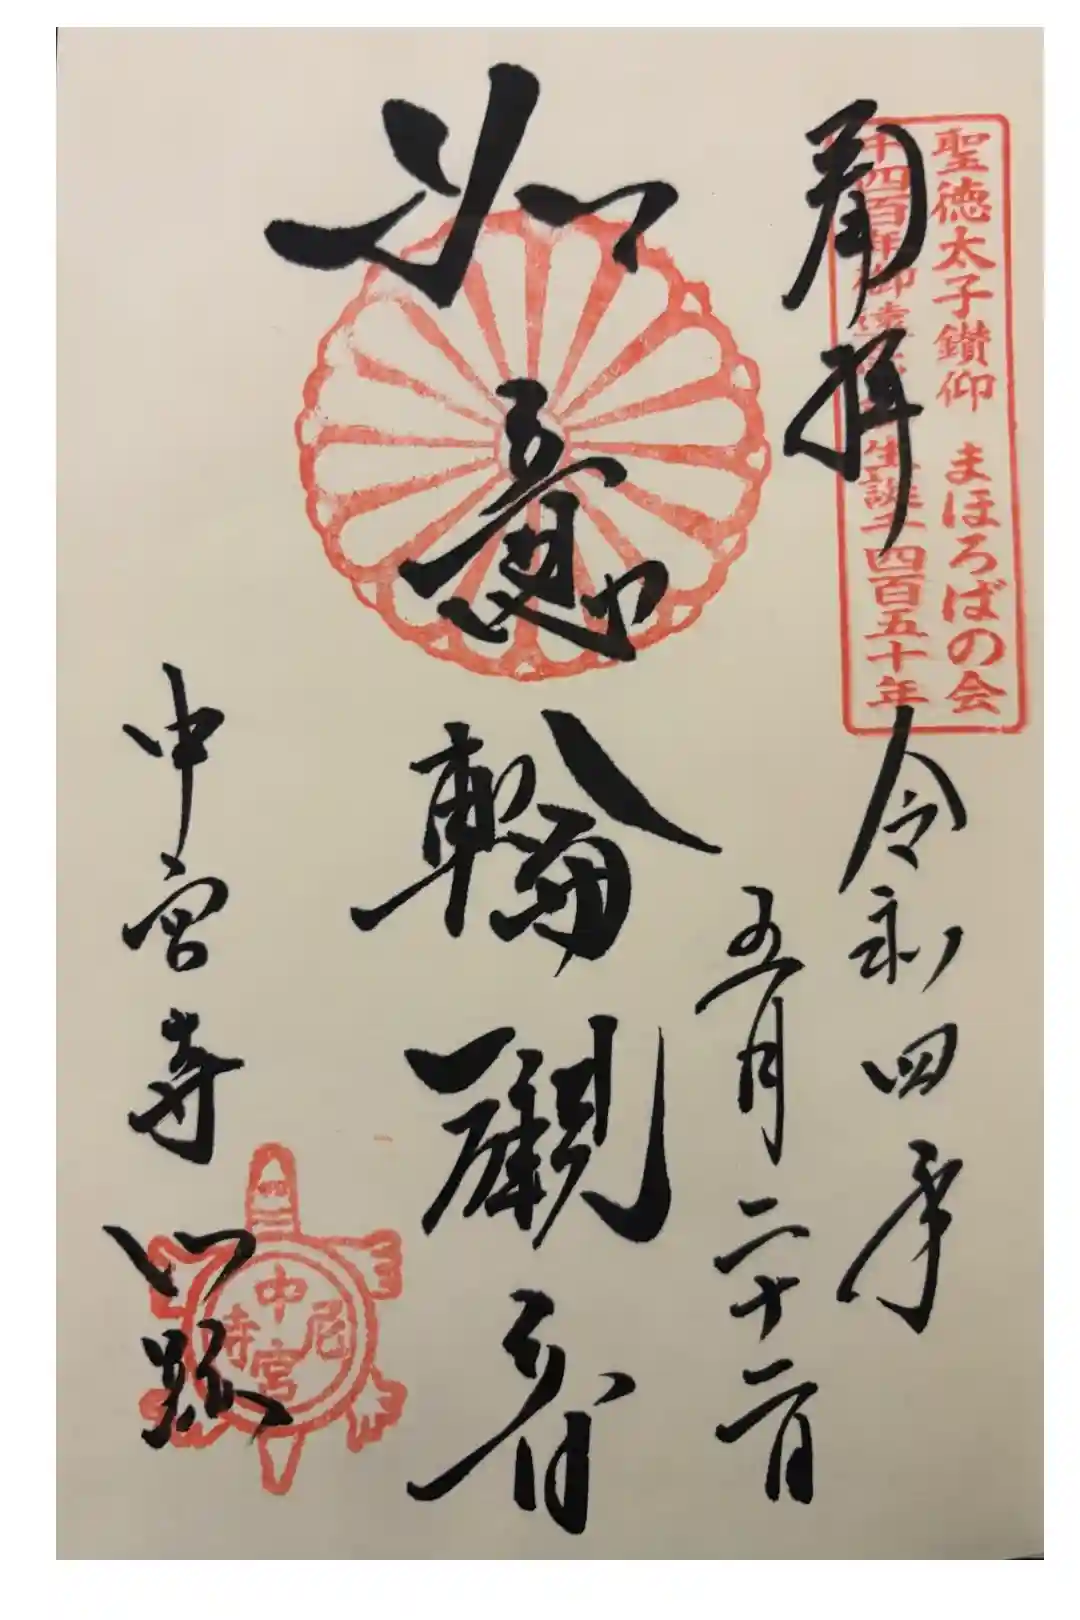 聖徳太子鑚仰 まほろばの会
千四百年御遠 生誕千四百五十年
奉拝 令和四年
五月二十二日
如意輪観音
中宮寺門跡
中宮尼寺